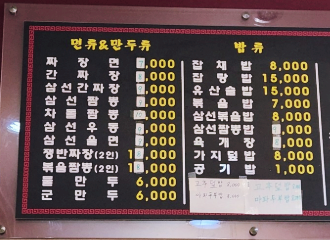 면류&만두류
짜장면 7,000
간짜장 ,000
삼선간짜장 ,000
삼선짬뽕 ,000
차돌짬뽕 ,000
삼선우동 ,000
삼선울면 ,000
쟁반짜장(2인) ,000
볶음짬뽕(2인) ,000
물만두 6,000
군만두 6,000
밥류
잡채밥 8,000
잡탕밥 15,000
유산슬밥 15,000
볶음밥 7,000
삼선볶음밥 8,000
삼선짬뽕밥 ,000
육개장 ,000
가지덮밥 8,000
공기밥 1,000